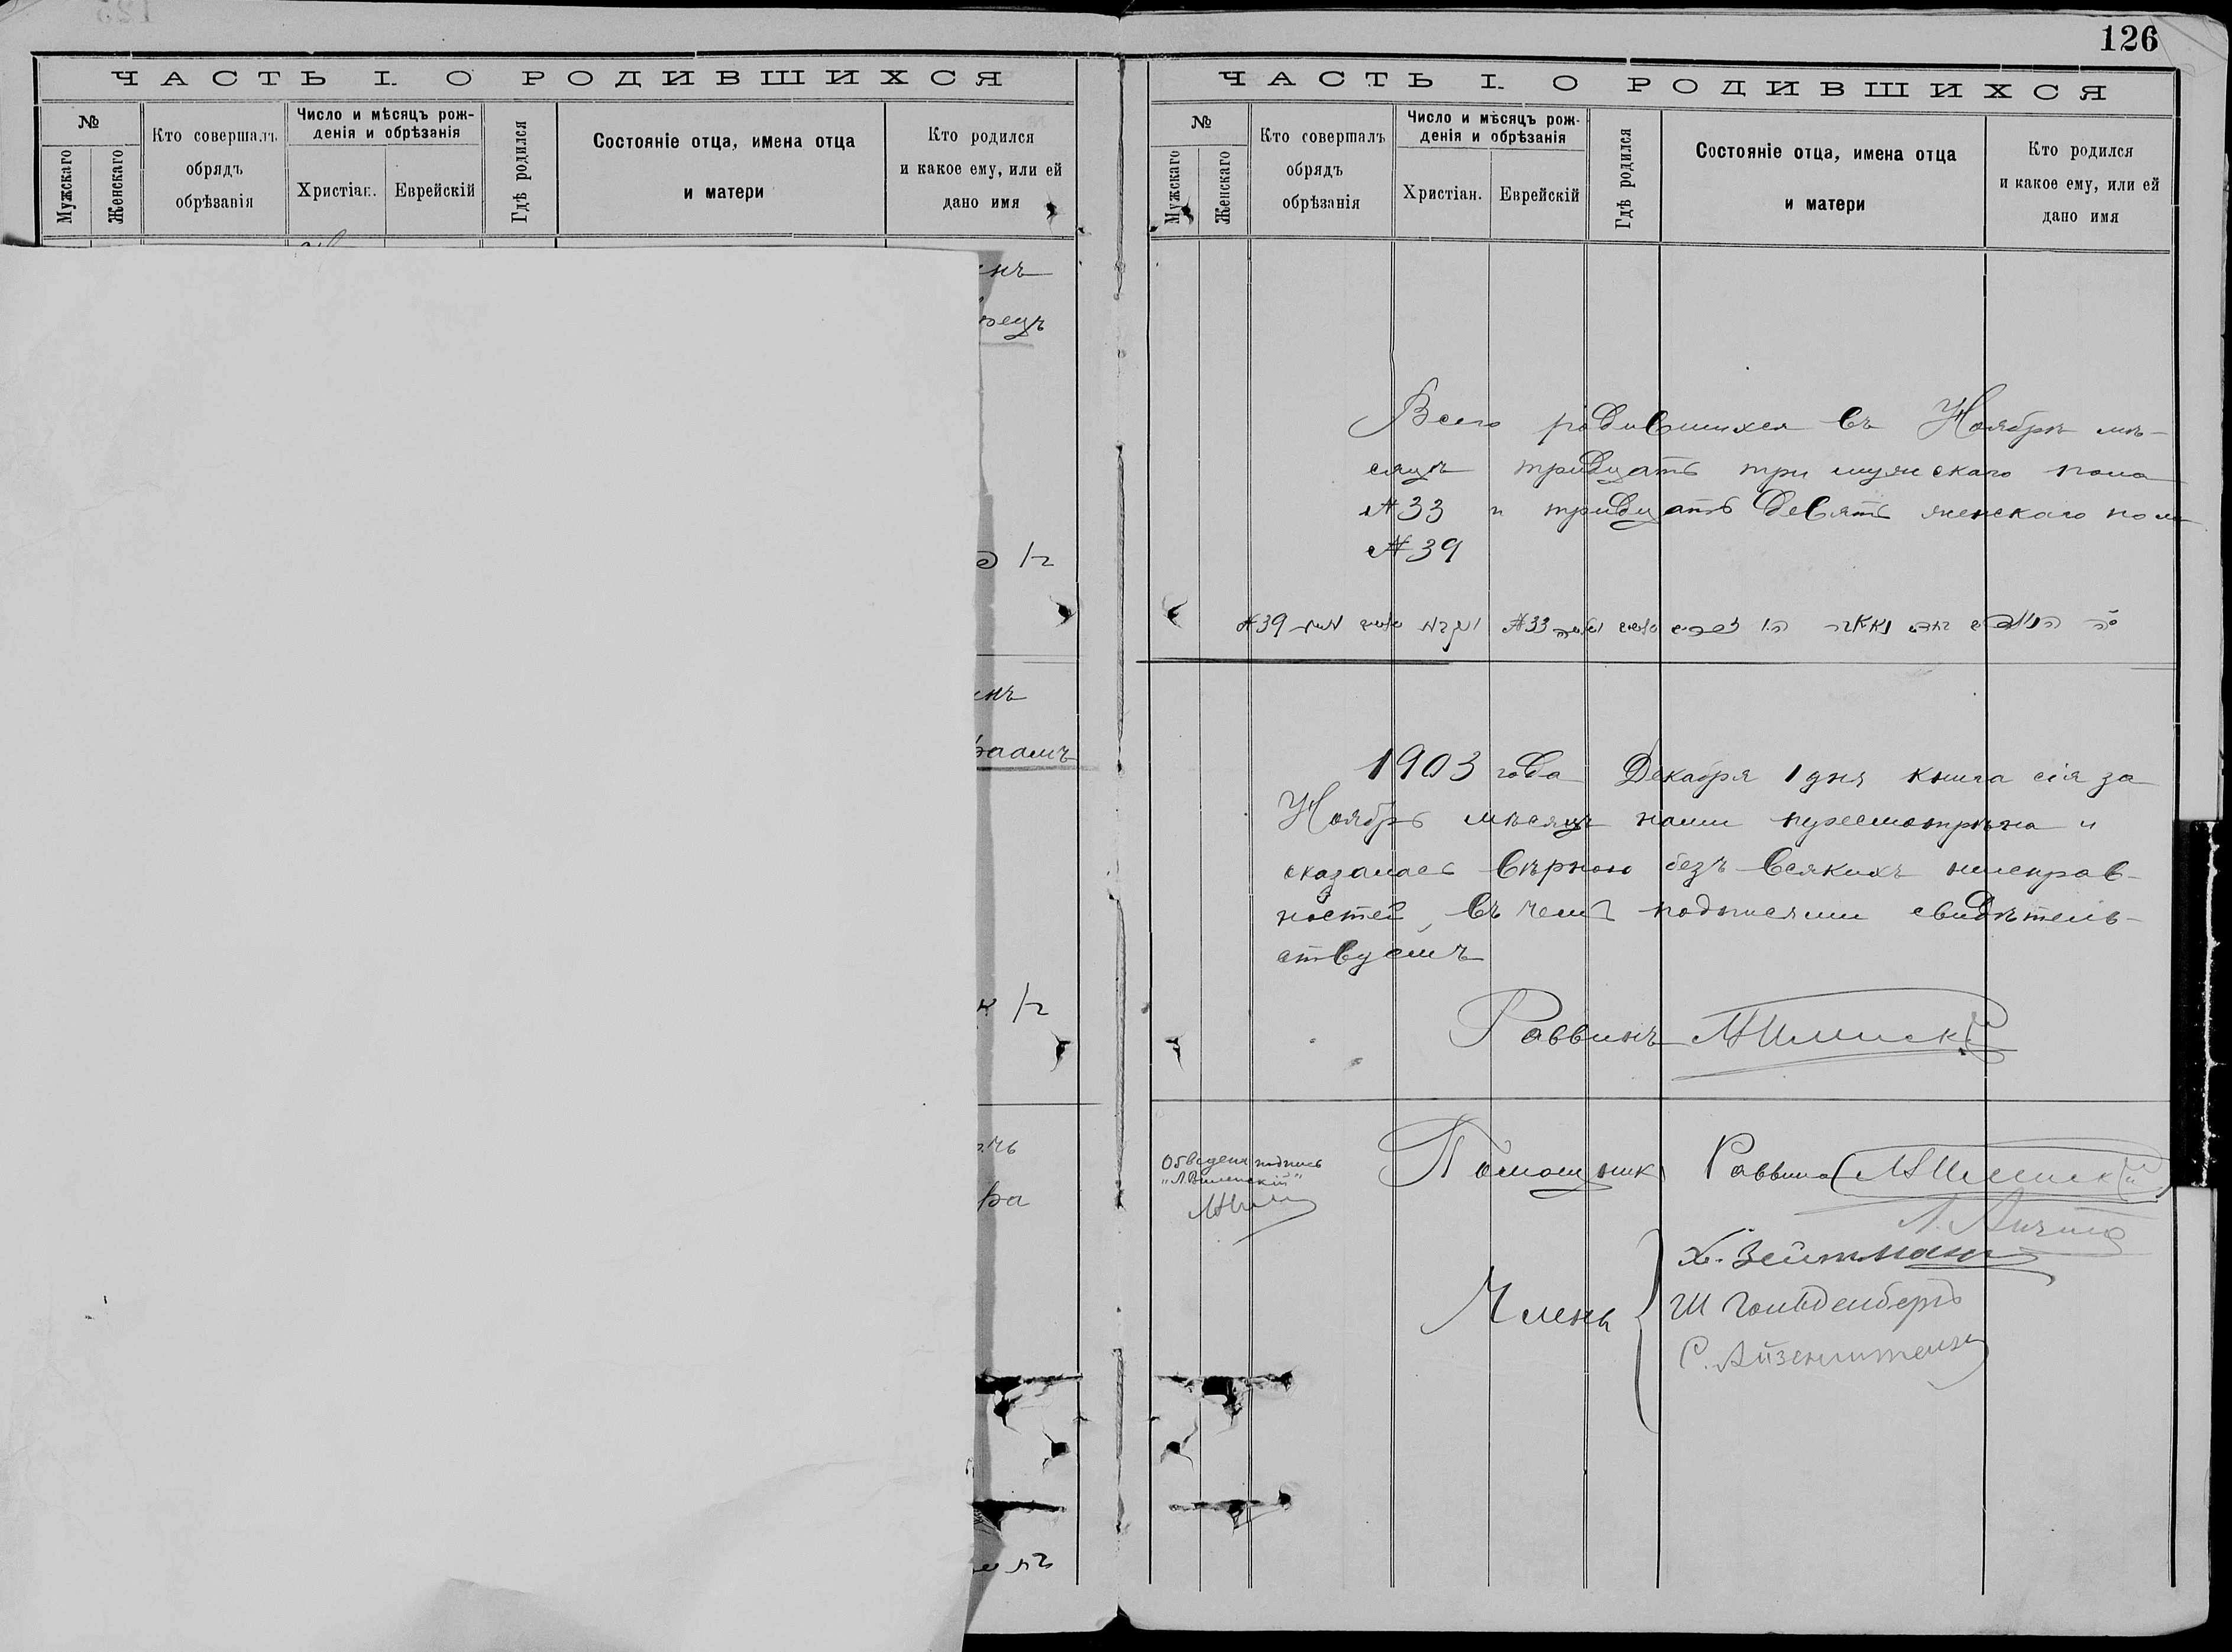 ЧАСТЬ I. О РОДИВШИХСЯ
№
Мужскаго
Женскаго
Кто совершалъ
обрядъ
обрѣзанія
Число и мѣсяцъ рож-
денія и обрѣзанія
Христіан.
Еврейскій
Гдѣ родился
Состояніе отца, имена отца
и матери
Кто родился
и какое ему, или ей
дано имя
126
ЧАСТЬ I. О РОДИВШИХСЯ
№
Мужскаго
Женскаго
Кто совершалъ
обрядъ
обрѣзанія
Число и мѣсяцъ рож-
денія и обрѣзанія
Христіан.
Еврейскій
Гдѣ родился
Состояніе отца, имена отца
и матери
Кто родился
и какое ему, или ей
дано имя
Всего родившихся въ Ноябрѣ мѣ-
сяцѣ тридцать три мужскаго пола
№ 33 и тридцать девять женскаго пола
№ 39
1903 года Декабря 1 дня книга сія за
Ноябрь мѣсяцъ нами пересмотрѣна и
оказалась вѣрною безъ всякихъ неисправ-
ностей, въ чемъ подписями свидѣтель-
ствуемъ
Раввинъ
Помощник Раввина
Обведена подпись
"Л. Виленскій"
Х. Зейтманъ
Члены
Ш Гольденбергъ
С. Айзенштейнъ